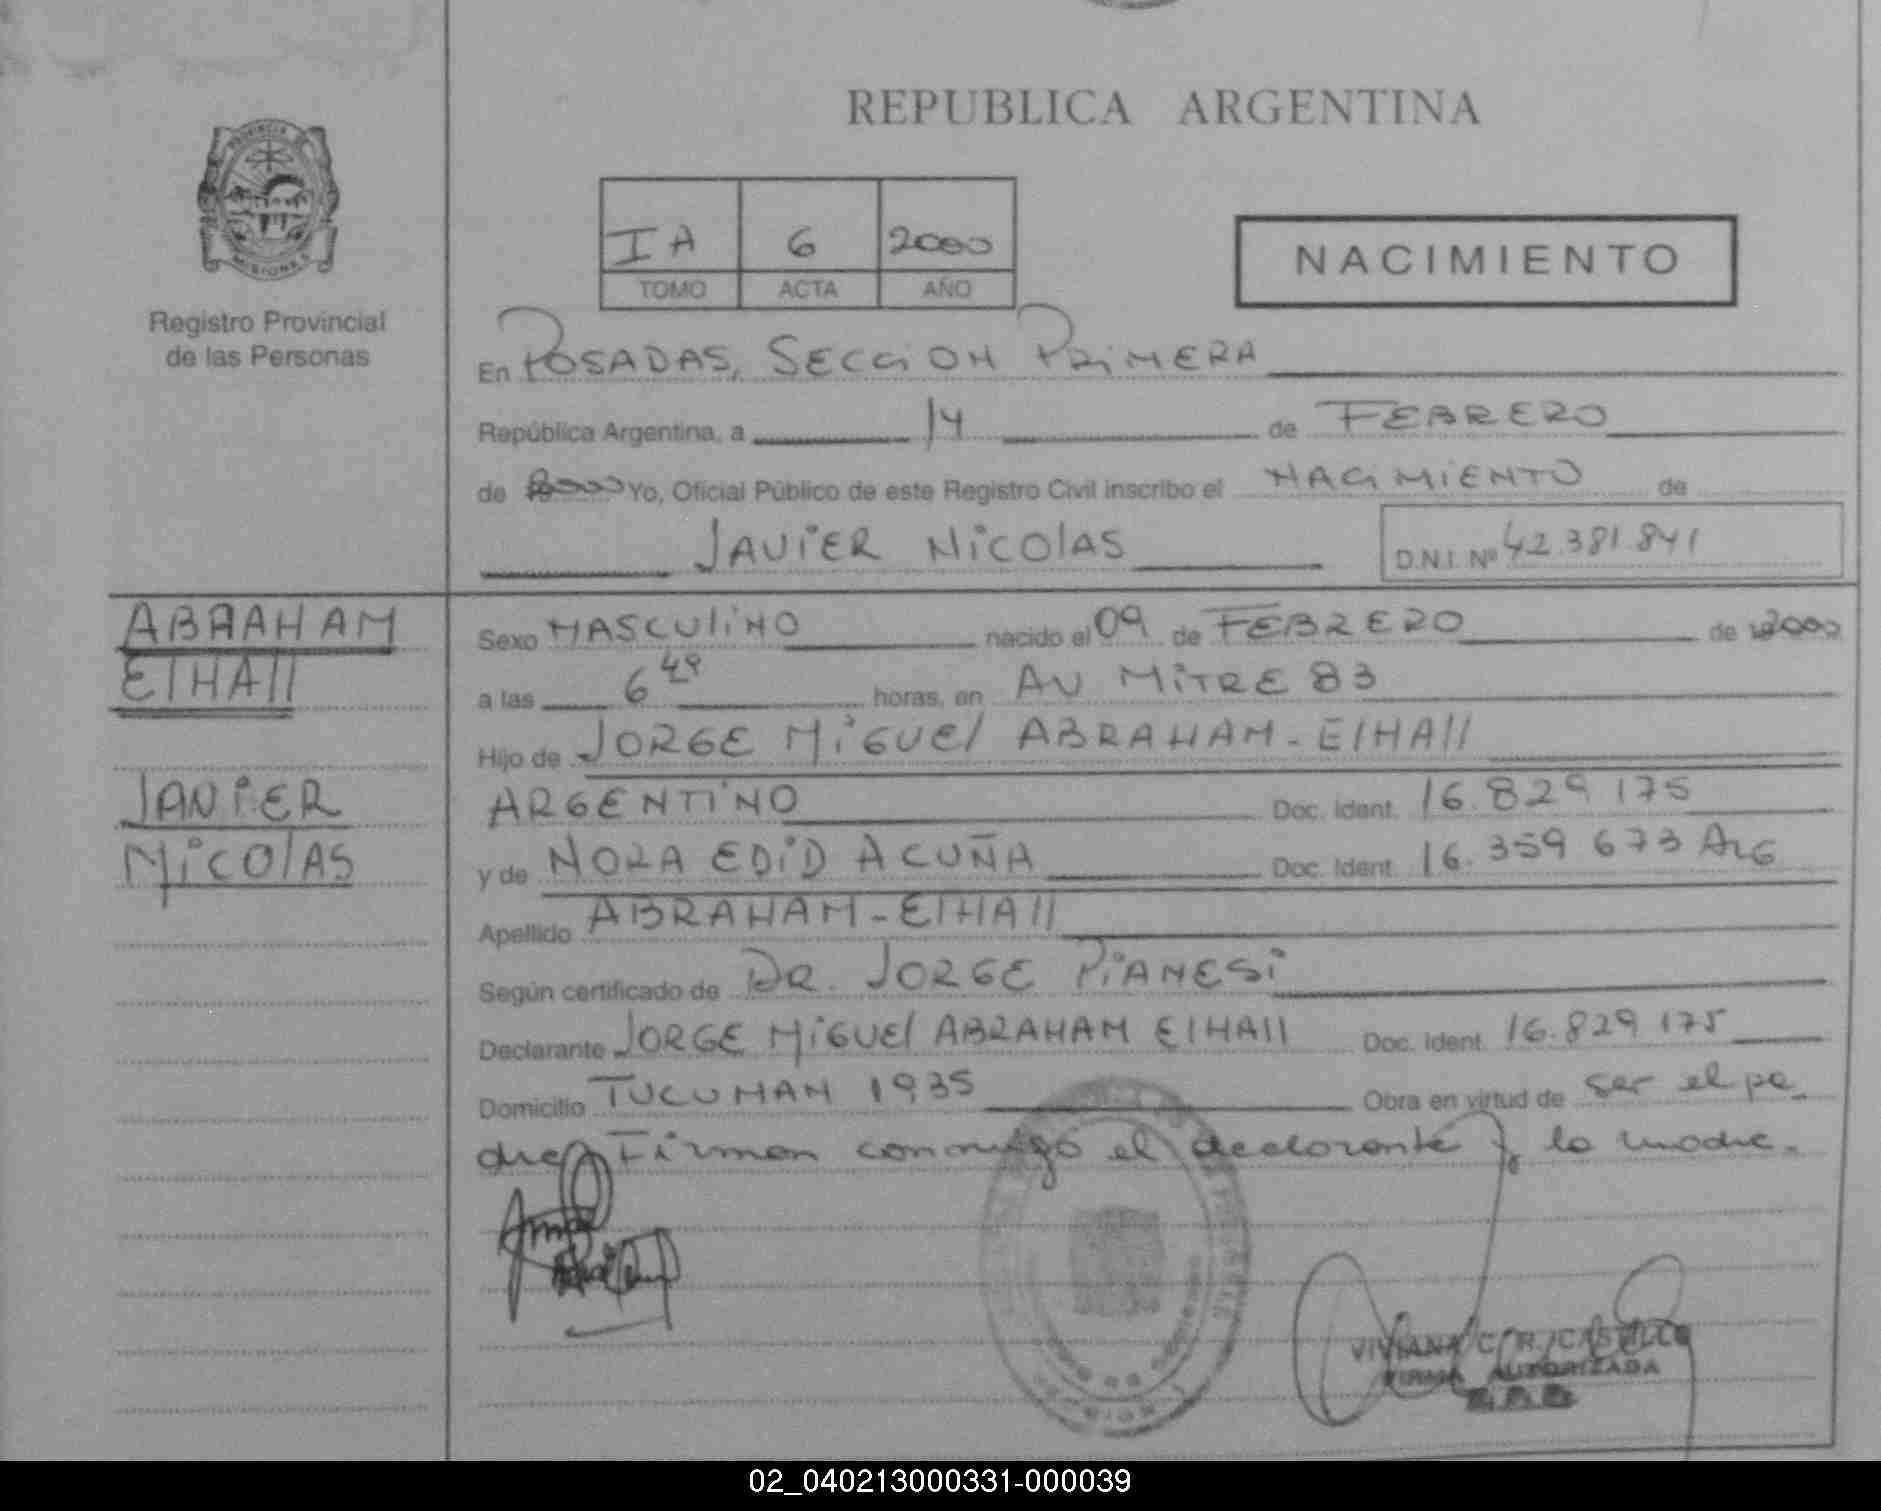 REPUBLICA ARGENTINA
PROVINCIA DE
MISIONES
Registro Provincial
de las Personas
IA 6 2000
TOMO ACTA AÑO
NACIMIENTO
En POSADAS, SECCION PRIMERA
República Argentina, a 14 de FEBRERO
de 2000 Yo, Oficial Público de este Registro Civil inscribo el NACIMIENTO de
JAVIER NICOLAS D.N.I. Nº 42.381.841
ABRAHAM
ElHAll
JAVIER
NICOLAS
Sexo MASCULINO nacido el 09 de FEBRERO de 2000
a las 6 49 horas, en AV MITRE 83
Hijo de JORGE MIGUEl ABRAHAM-ElHAll
ARGENTINO Doc. Ident. 16.829 175
y de NORA EDID ACUÑA Doc. Ident. 16.359 673 ARG
Apellido ABRAHAM-ElHAll
Según certificado de DR. JORGE PIANESI
Declarante JORGE MIGUEl ABRAHAM ElHAll Doc. Ident. 16.829 175
Domicilio TUCUMAN 1935 Obra en virtud de ser el pa
dre Firman conmigo el declarante y la madre.
VIVIANA C. R. CASTILLO
FIRMA AUTORIZADA
02_040213000331-000039